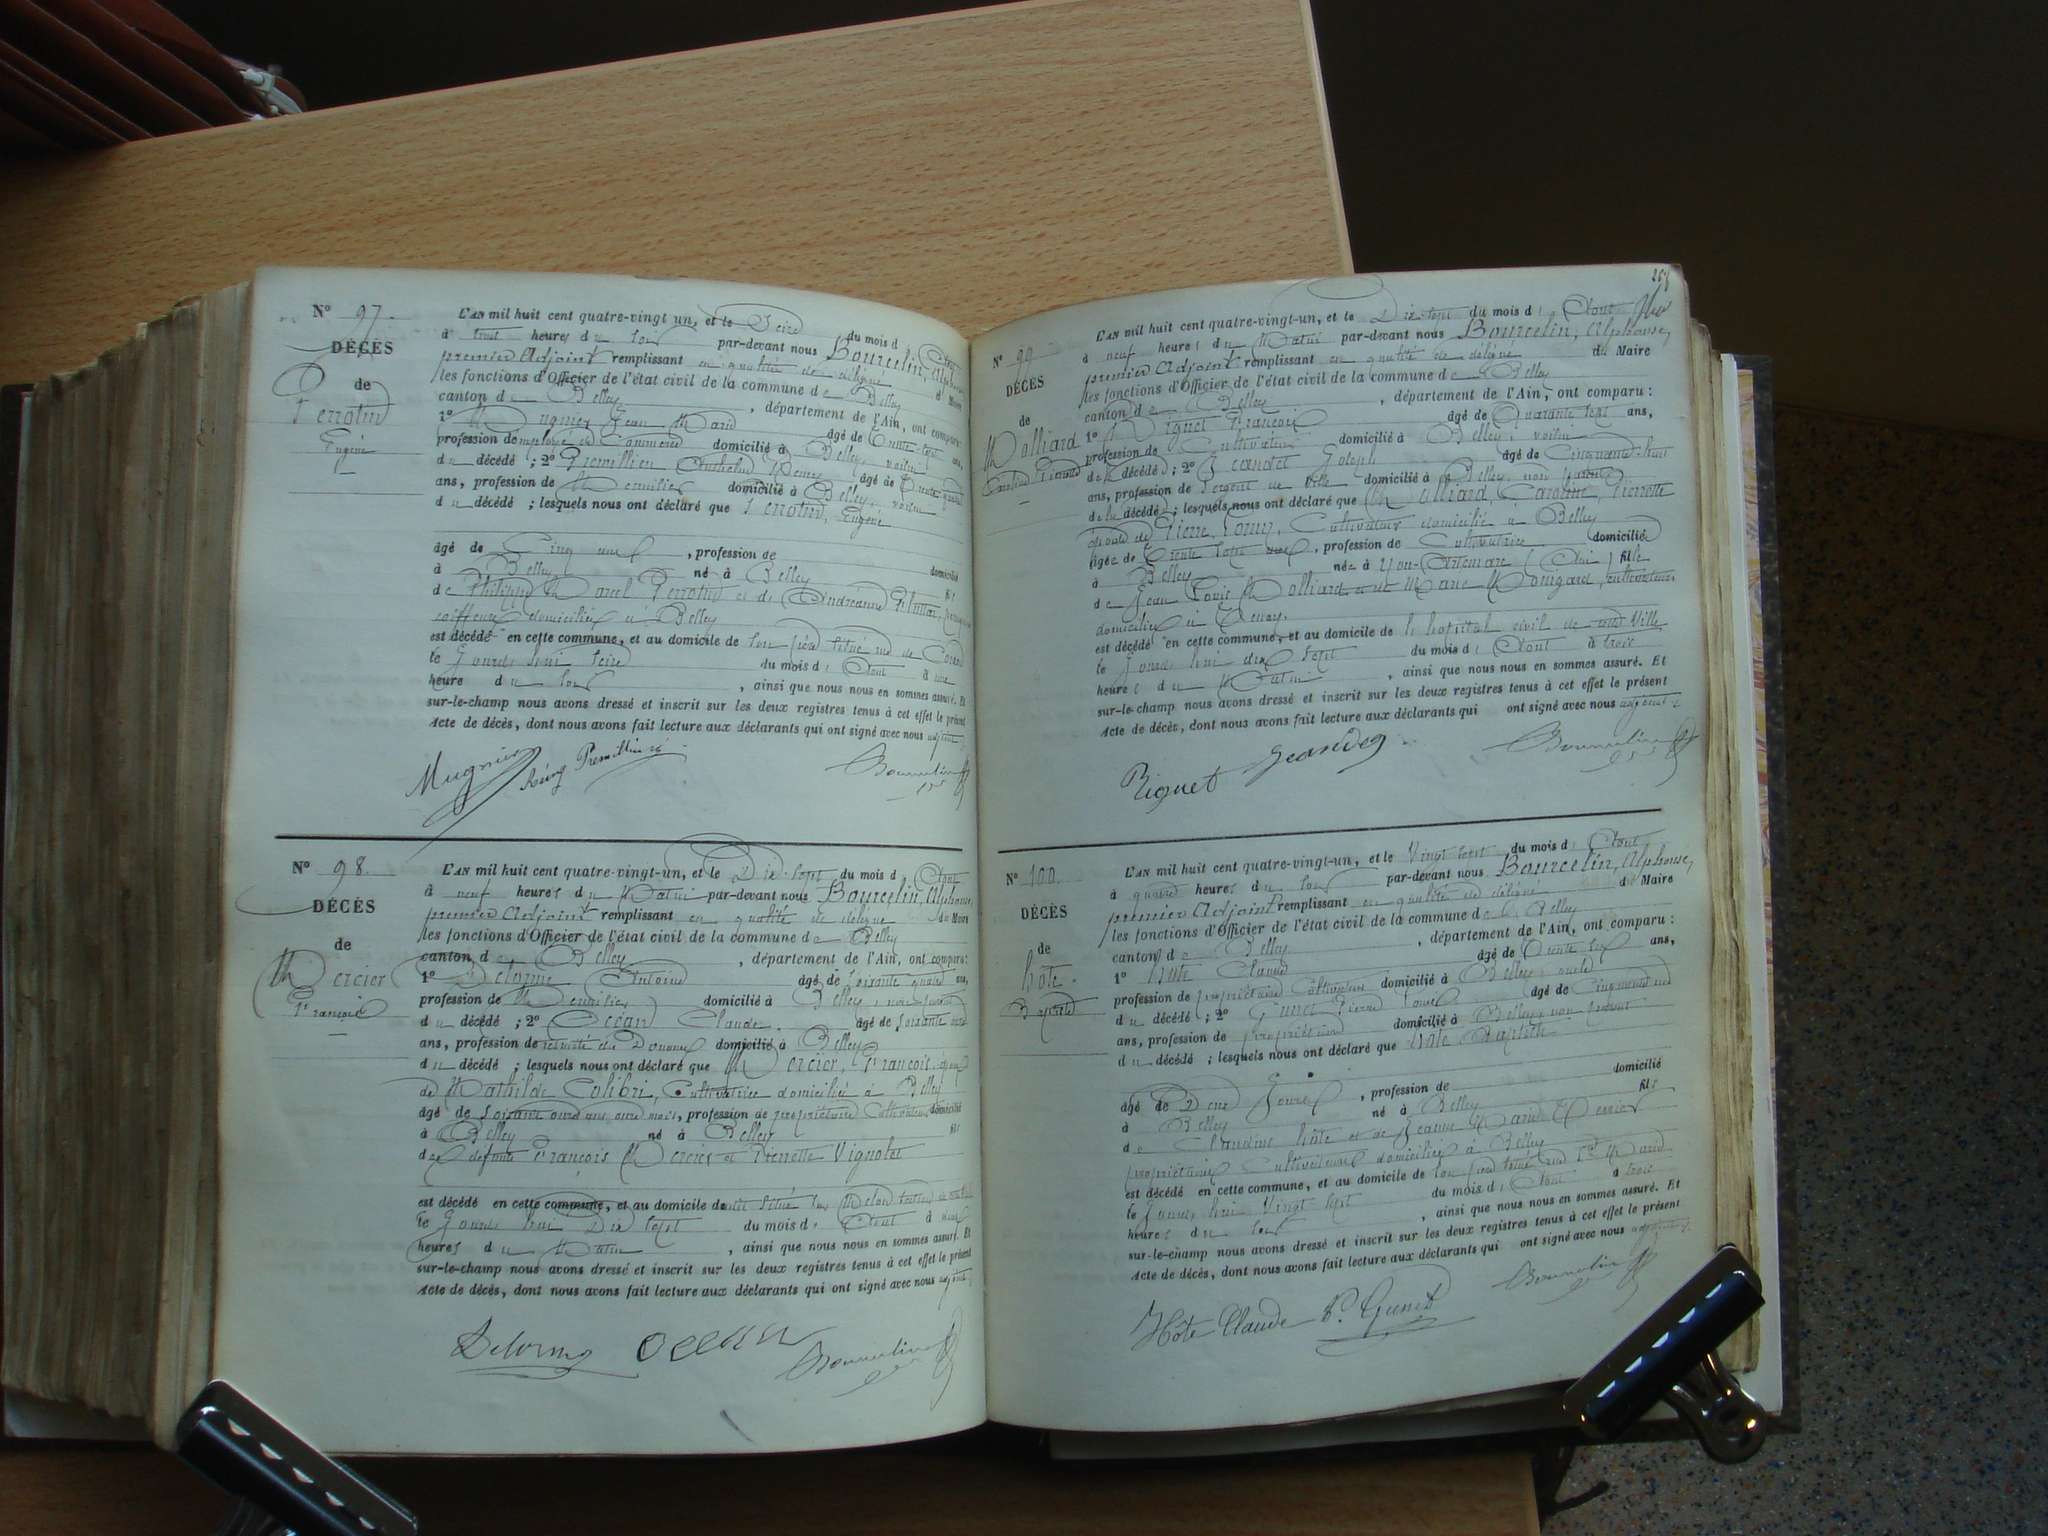 N° 97.
DÉCÈS
de
Perrotin
Eugène
L'AN mil huit cent quatre-vingt un, et le Seize du mois d Aout
à trois heures du soir par-devant nous Bourcelin, Alphonse
premier Adjoint remplissant en qualité de délégué du Maire
les fonctions d'Officier de l'état civil de la commune de Belley
canton de Belley, département de l'Ain, ont comparu:
1° Mugnier Jean Marie âgé de trente-sept ans,
profession d'employé de Commerce domicilié à Belley, voisin
du décédé; 2° âgé de
ans, profession de Menuisier domicilié à Belley, voisin
du décédé; lesquels nous ont déclaré que Perrotin, Eugène
âgé de Cinq ans, profession de domicilié
à Belley né à Belley fils
de Philippe Marcel Perrotin et de Andréanne
coiffeurs domiciliés à Belley
est décédé en cette commune, et au domicile de son père situé rue de
le Jourd'hui Seize du mois d'Aout à une
heure du soir, ainsi que nous nous en sommes assuré. Et
sur-le-champ nous avons dressé et inscrit sur les deux registres tenus à cet effet le présent
Acte de décès, dont nous avons fait lecture aux déclarants qui ont signé avec nous adjoint
Mugnier Bourcelin
N° 98.
DÉCÈS
de
Mercier
François
L'AN mil huit cent quatre-vingt-un, et le Dix-Sept du mois d Aout
à neuf heures du Matin par-devant nous Bourcelin, Alphonse,
premier Adjoint remplissant en qualité de délégué du Maire
les fonctions d'Officier de l'état civil de la commune de Belley
canton de Belley, département de l'Ain, ont comparu:
1° Delorme Antoine âgé de soixante quatre ans,
profession de Menuisier domicilié à Belley, non parent
du décédé; 2° Océan Claude âgé de soixante
ans, profession de retraité des Douanes domicilié à Belley
du décédé; lesquels nous ont déclaré que Mercier, François, époux
de Mathilde Colibri, Cultivatrice domiciliée à Belley
âgé de soixante onze ans, onze mois, profession de propriétaire Cultivateur domicilié
à Belley né à Belley fils
des défunts François Mercier et Pierrette Vignolet
est décédé en cette commune, et au domicile de situé
le Jourd'hui Dix Sept du mois d'Aout à
heures du Matin, ainsi que nous nous en sommes assuré. Et
sur-le-champ nous avons dressé et inscrit sur les deux registres tenus à cet effet le présent
Acte de décès, dont nous avons fait lecture aux déclarants qui ont signé avec nous adjoint
Delorme Océan Bourcelin
N° 99
DÉCÈS
de
Molliard
Caroline Pierrette
L'AN mil huit cent quatre-vingt-un, et le Dix Sept du mois d'Aout
à neuf heures du Matin par-devant nous Bourcelin, Alphonse,
premier Adjoint remplissant en qualité de délégué du Maire
les fonctions d'Officier de l'état civil de la commune de Belley
canton de Belley, département de l'Ain, ont comparu:
1° Riguet François âgé de Quarante sept ans,
profession de Cultivateur domicilié à Belley, voisin
de la décédée; 2° Jeandet Joseph âgé de Cinquante-huit
ans, profession de Sergent de ville domicilié à Belley, non parent
de la décédée; lesquels nous ont déclaré que Molliard, Caroline, Pierrette
épouse de Pierre Cultivateur domicilié à Belley
âgée de trente sept ans, profession de Cultivatrice domiciliée
à Belley née à Yon-Artemare (Ain) fille
de Jean Louis Molliard et de Marie cultivateurs
domiciliés à
est décédée en cette commune, et au domicile de l'hopital civil de cette Ville
le Jourd'hui dix sept du mois d'Aout à trois
heures du Matin, ainsi que nous nous en sommes assuré. Et
sur-le-champ nous avons dressé et inscrit sur les deux registres tenus à cet effet le présent
Acte de décès, dont nous avons fait lecture aux déclarants qui ont signé avec nous adjoint
Riguet Jeandet Bourcelin
N° 100.
DÉCÈS
de
hôte.
Baptiste
L'AN mil huit cent quatre-vingt-un, et le Vingt sept du mois d'Aout
à quatre heures du soir par-devant nous Bourcelin, Alphonse,
premier Adjoint remplissant en qualité de délégué du Maire
les fonctions d'Officier de l'état civil de la commune de Belley
canton de Belley, département de l'Ain, ont comparu:
1° hôte Claude âgé de trente ans,
profession de propriétaire Cultivateur domicilié à Belley, oncle
du décédé; 2° Pierre Louis âgé de
ans, profession de propriétaire domicilié à Belley, non parent
du décédé; lesquels nous ont déclaré que hôte Baptiste
âgé de Deux Jours, profession de domicilié
à Belley né à Belley fils
de Claudius hôte et de Jeanne Marie
propriétaires Cultivateurs domiciliés à Belley
est décédé en cette commune, et au domicile de son père situé
le Jourd'hui Vingt sept du mois d'Aout à trois
heures du soir, ainsi que nous nous en sommes assuré. Et
sur-le-champ nous avons dressé et inscrit sur les deux registres tenus à cet effet le présent
Acte de décès, dont nous avons fait lecture aux déclarants qui ont signé avec nous adjoint
Hôte Claude Bourcelin